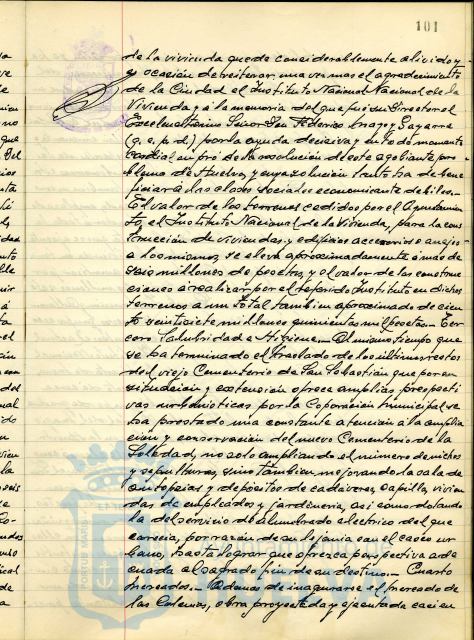 101
de la vivienda quede considerablemente aliviado y
y ocasión de reiterar, una vez mas el agradecimiento
de la Ciudad al Instituto Nacional Nacional de la
Vivienda y a la memoria del que fué su Director el
Excelentísimo Señor Don Federico Mayo y Gayarre
(q. e. p. d.) por la ayuda decisiva y en todo momento
cordial en pró de la resolución de este agobiante pro-
blema de Huelva, y cuya solución tanto ha de bene-
ficiar a las clases sociales economicamente debiles.-
El valor de los terrenos cedidos por el Ayuntamien-
to, al Instituto Nacional de la Vivienda, para la cons-
trucción de viviendas y edificios accesorios o anejos
a los mismos, se eleva aproximadamente a mas de
seis millones de pesetas, y el valor de las construc-
ciones a realizar por el referido Instituto en dichos
terrenos a un total tambien aproximado de cien-
to veintisiete millones quinientas mil pesetas.- Ter-
cero Salubridad e Higiene.- Al mismo tiempo que
se ha terminado el traslado de los ultimos restos
del viejo Cementerio de San Sebastián que por su
situación y extensión ofrece amplias prespecti-
vas urbanisticas por la Coporación municipal se
ha prestado una constante atención a la amplia-
ción y conservación del nuevo Cementerio de la
Soledad, no solo ampliando el número de nichos
y sepulturas, sino tambien mejorando la sala de
autopsias y depósitos de cadáveres, capilla, vivien-
das de empleados y jardinería, asi como dotando-
la del servicio de alumbrado electrico del que
carecía, por razón de su lejania con el casco ur-
bano, hasta lograr que ofrezca perspectiva ade-
cuada al sagrado fin de su destino.- Cuarto
Mercados.- Ademas de inaugurarse el Mercado de
las Colonias, obra proyectada y ejecutada casi en